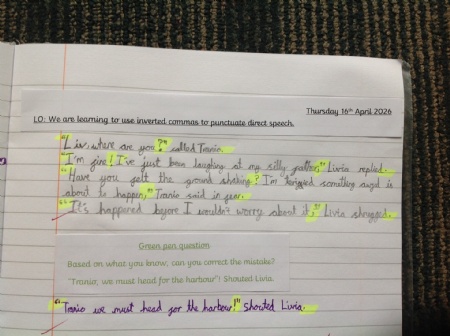 Thursday 16th April 2026
LO: We are learning to use inverted commas to punctuate direct speech.
"Liv, where are you?" called Tranio.
"I'm fine! I've just been laughing at my silly father," Livia replied.
"Have you felt the ground shaking? I'm terrified something awful is
about to happen," Tranio said in fear.
"It's happened before I wouldn't worry about it," Livia shrugged.
Green pen question
Based on what you know, can you correct the mistake?
"Tranio, we must head for the harbour"! Shouted Livia.
"Tranio we must head for the harbour!" Shouted Livia.